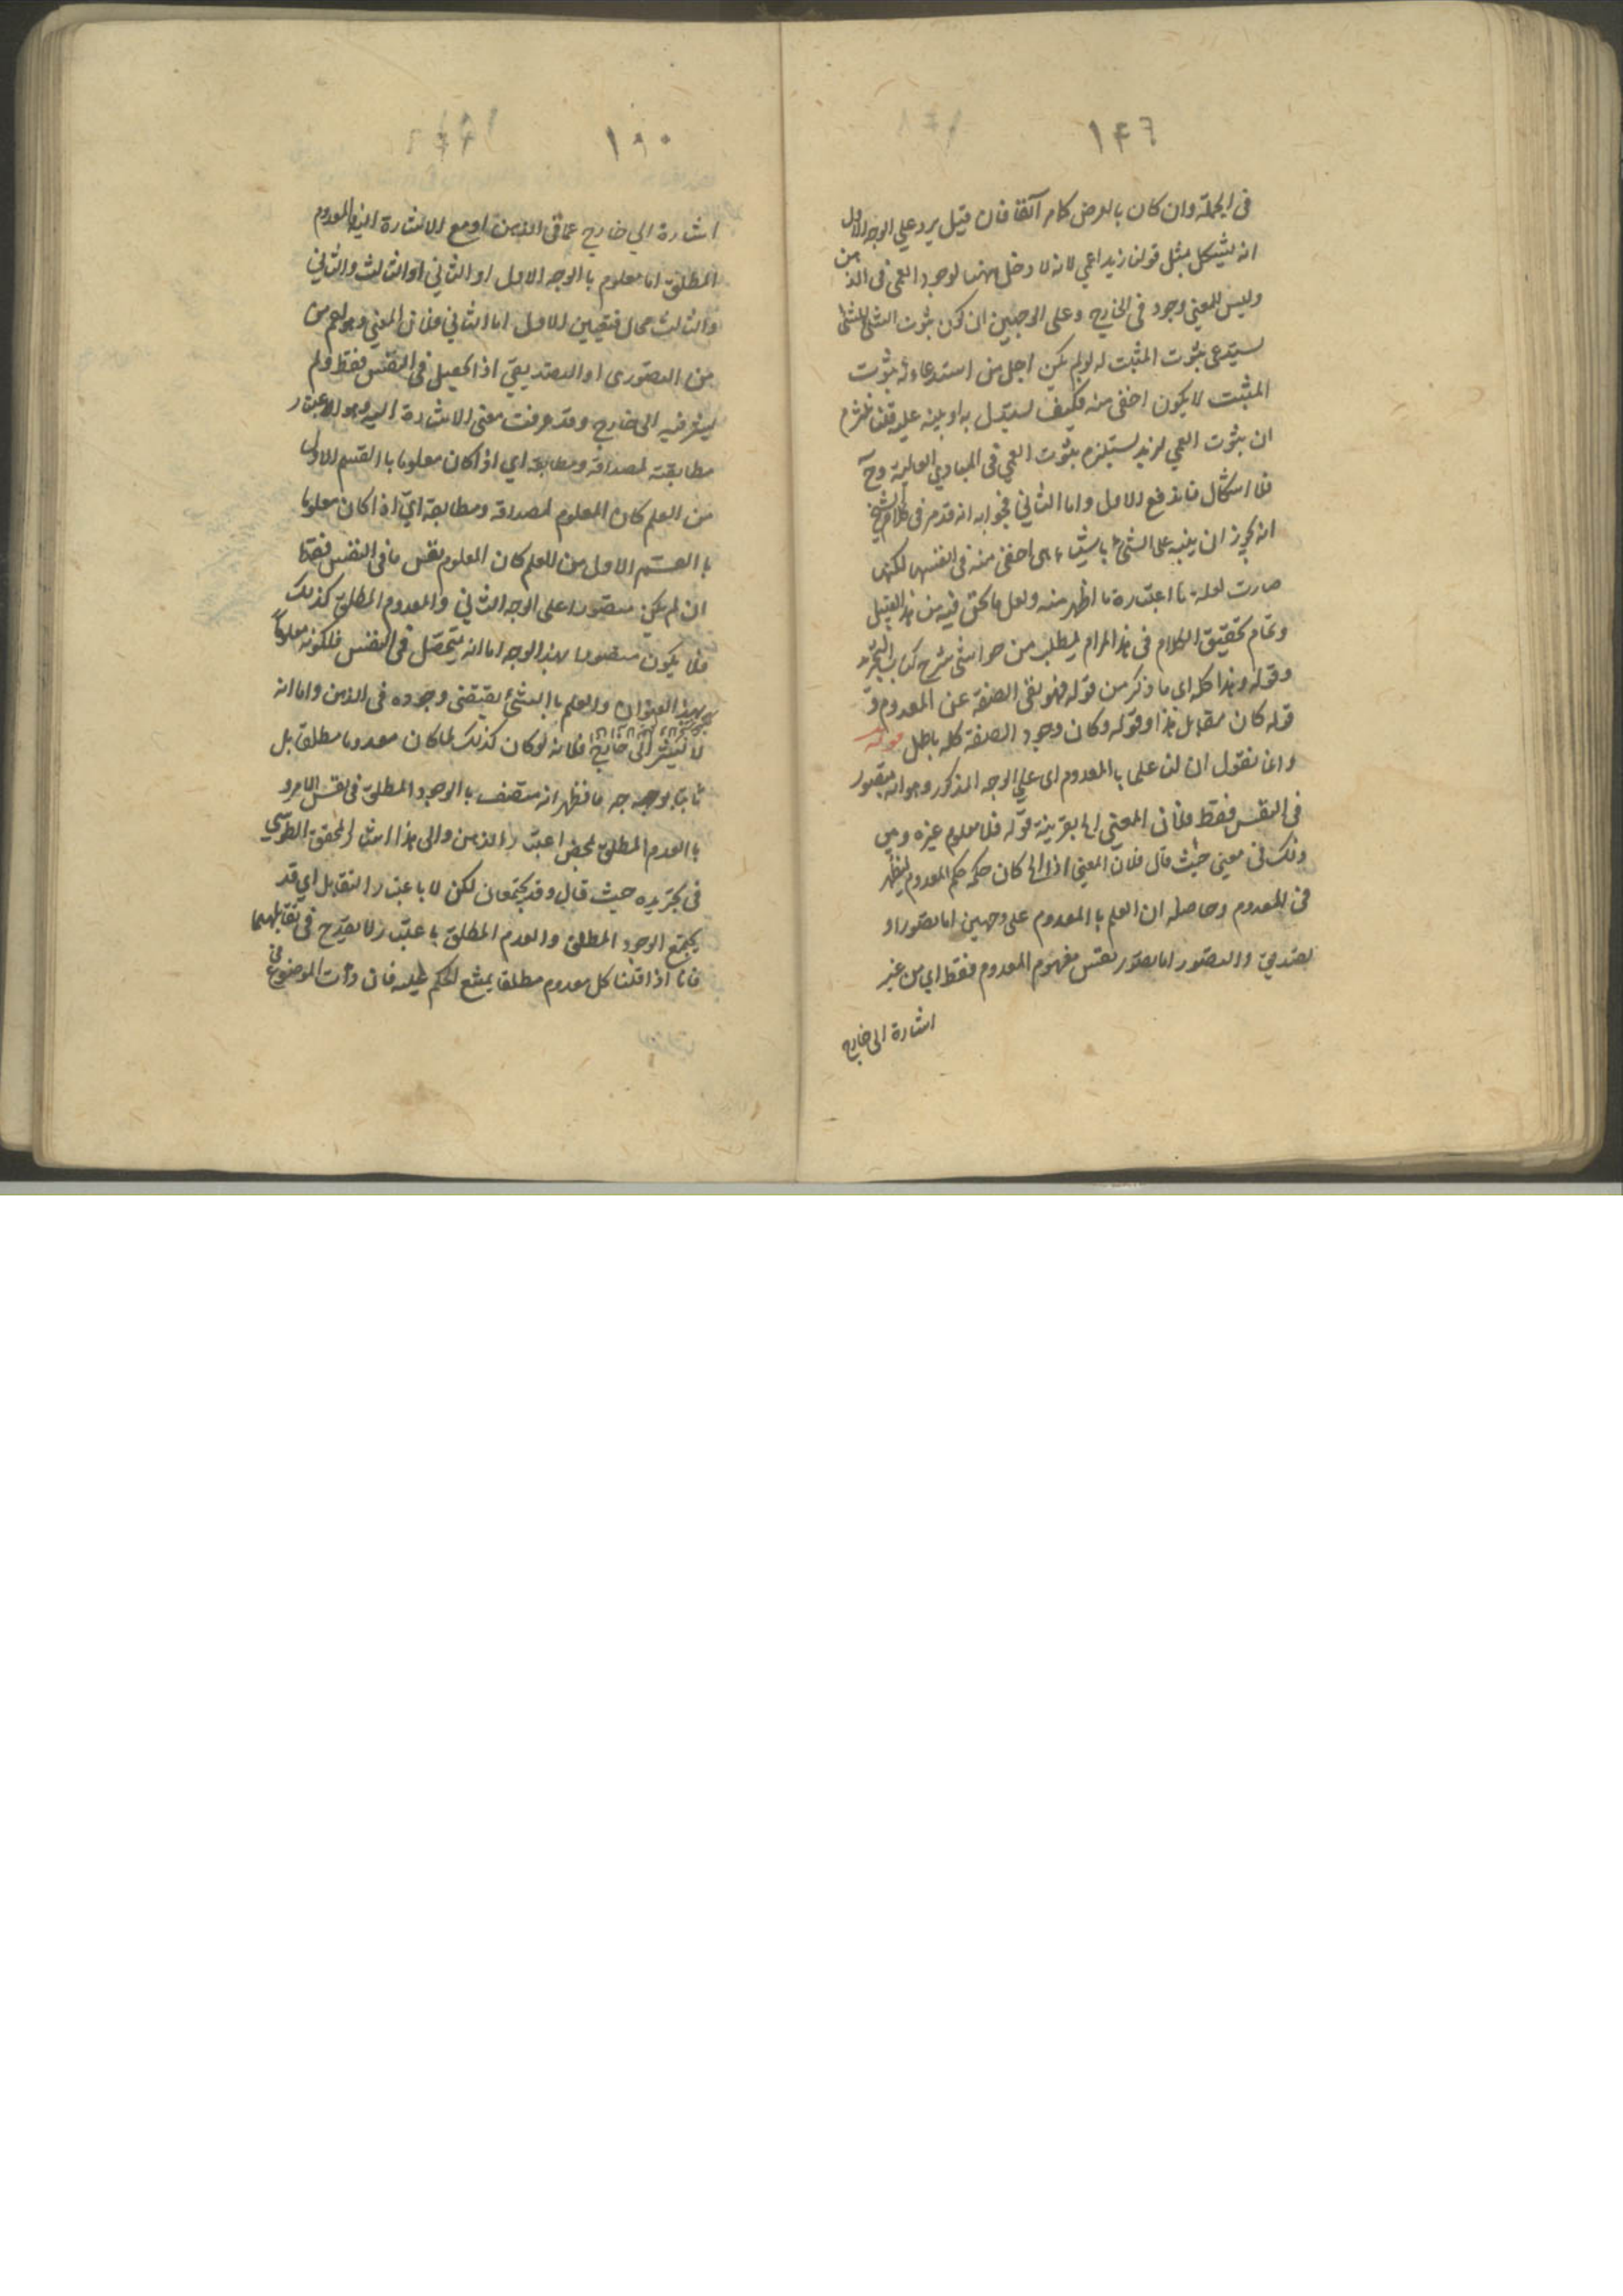 ١٤٦
في الجملة وان كان بالعرض كما مر آنفا فان قيل يرد علي الوجه الاول
انه يشكل بمثل قولنا زيد اعمي لانه لا دخل ههنا لوجود العمي في الذهن
وليس للمعني وجود في الخارج وعلي الوجهين ان كون ثبوت الشئ للشئ
يستدعي ثبوت المثبت له لو لم يكن اجلي من استدعائه ثبوت
المثبت لا يكون اخفي منه فكيف يستدل به او ينبه عليه قلنا نلتزم
ان ثبوت العمي لزيد يستلزم ثبوت العمي في المبادي العالية وح
فلا اشكال فاندفع الاول واما الثاني فجوابه انه قد مر في كلام الشيخ
انه يجوز ان ينبه علي الشئ باشياء هي اخفي منه في انفسها لكنها
صارت لعلة ما اعتبارة ما اظهر منه ولعل ما نحن فيه من هذا القبيل
وتمام تحقيق الكلام في هذا المرام يطلب من حواشي شرح كتاب التجريد
وقوله وهذا كله اي ما ذكر من قوله فهو نفي الصفة عن المعدوم و
قوله كان مقابل هذا وقوله وكان وجود الصفة كله باطل قوله
وانما نقول ان لنا علما بالمعدوم اي علي الوجه المذكور وهو انه متصور
في النفس فقط فلأن المعني اي بقرينة قوله فلا معلوم غيره ومن
ذلك في معني حيث قال فلان المعني اذا كان حكمه حكم المعدوم فيظهر
في المعدوم وحاصله ان العلم بالمعدوم علي وجهين اما تصور او
تصديق والتصور اما تصور نفس مفهوم المعدوم فقط اي من غير
اشارة الي خارج
١٩٠
اشارة الي خارج عما في الذهن او مع الاشارة اليه والمعدوم
المطلق اما معلوم بالوجه الاول او الثاني او الثالث والثاني
والثالث محال فتعين الاول اما الثاني فلان المعني وهو اعم من
من التصوري او التصديقي اذا تحصل في النفس فقط ولم
يشر فيه الي خارج وقد عرفت معني الاشارة اليه وهو الاعتبار
مطابقته لمصداقه ومطابقه اي اذا كان معلوما بالقسم الاول
من العلم كان المعلوم لمصداقه ومطابقه اي اذا كان معلوما
بالقسم الاول من العلم كان المعلوم نفس ما في النفس فقط
ان لم يكن متصورا علي الوجه الثاني والمعدوم المطلق كذلك
فلا يكون متصورا بهذا الوجه اما انه يتحصل في النفس فلكونه معلوما
بهذا العنوان والعلم بالشئ يقتضي وجوده في الذهن واما انه
لا يشير الي خارج فلانه لو كان كذلك لما كان معدوما مطلقا بل
ثابتا بوجه ما فظهر انه متصف بالوجود المطلق في نفس الامر و
بالعدم المطلق بمحض اعتبار الذهن والي هذا اشار المحقق الطوسي
في تجريده حيث قال وقد يجتمعان لكن لا باعتبار التقابل اي قد
يجتمع الوجود المطلق والعدم المطلق باعتبار لا يقدح في تقابلهما
فانا اذا قلنا كل معدوم مطلقا يمتنع الحكم عليه فان ذات الموضوع في